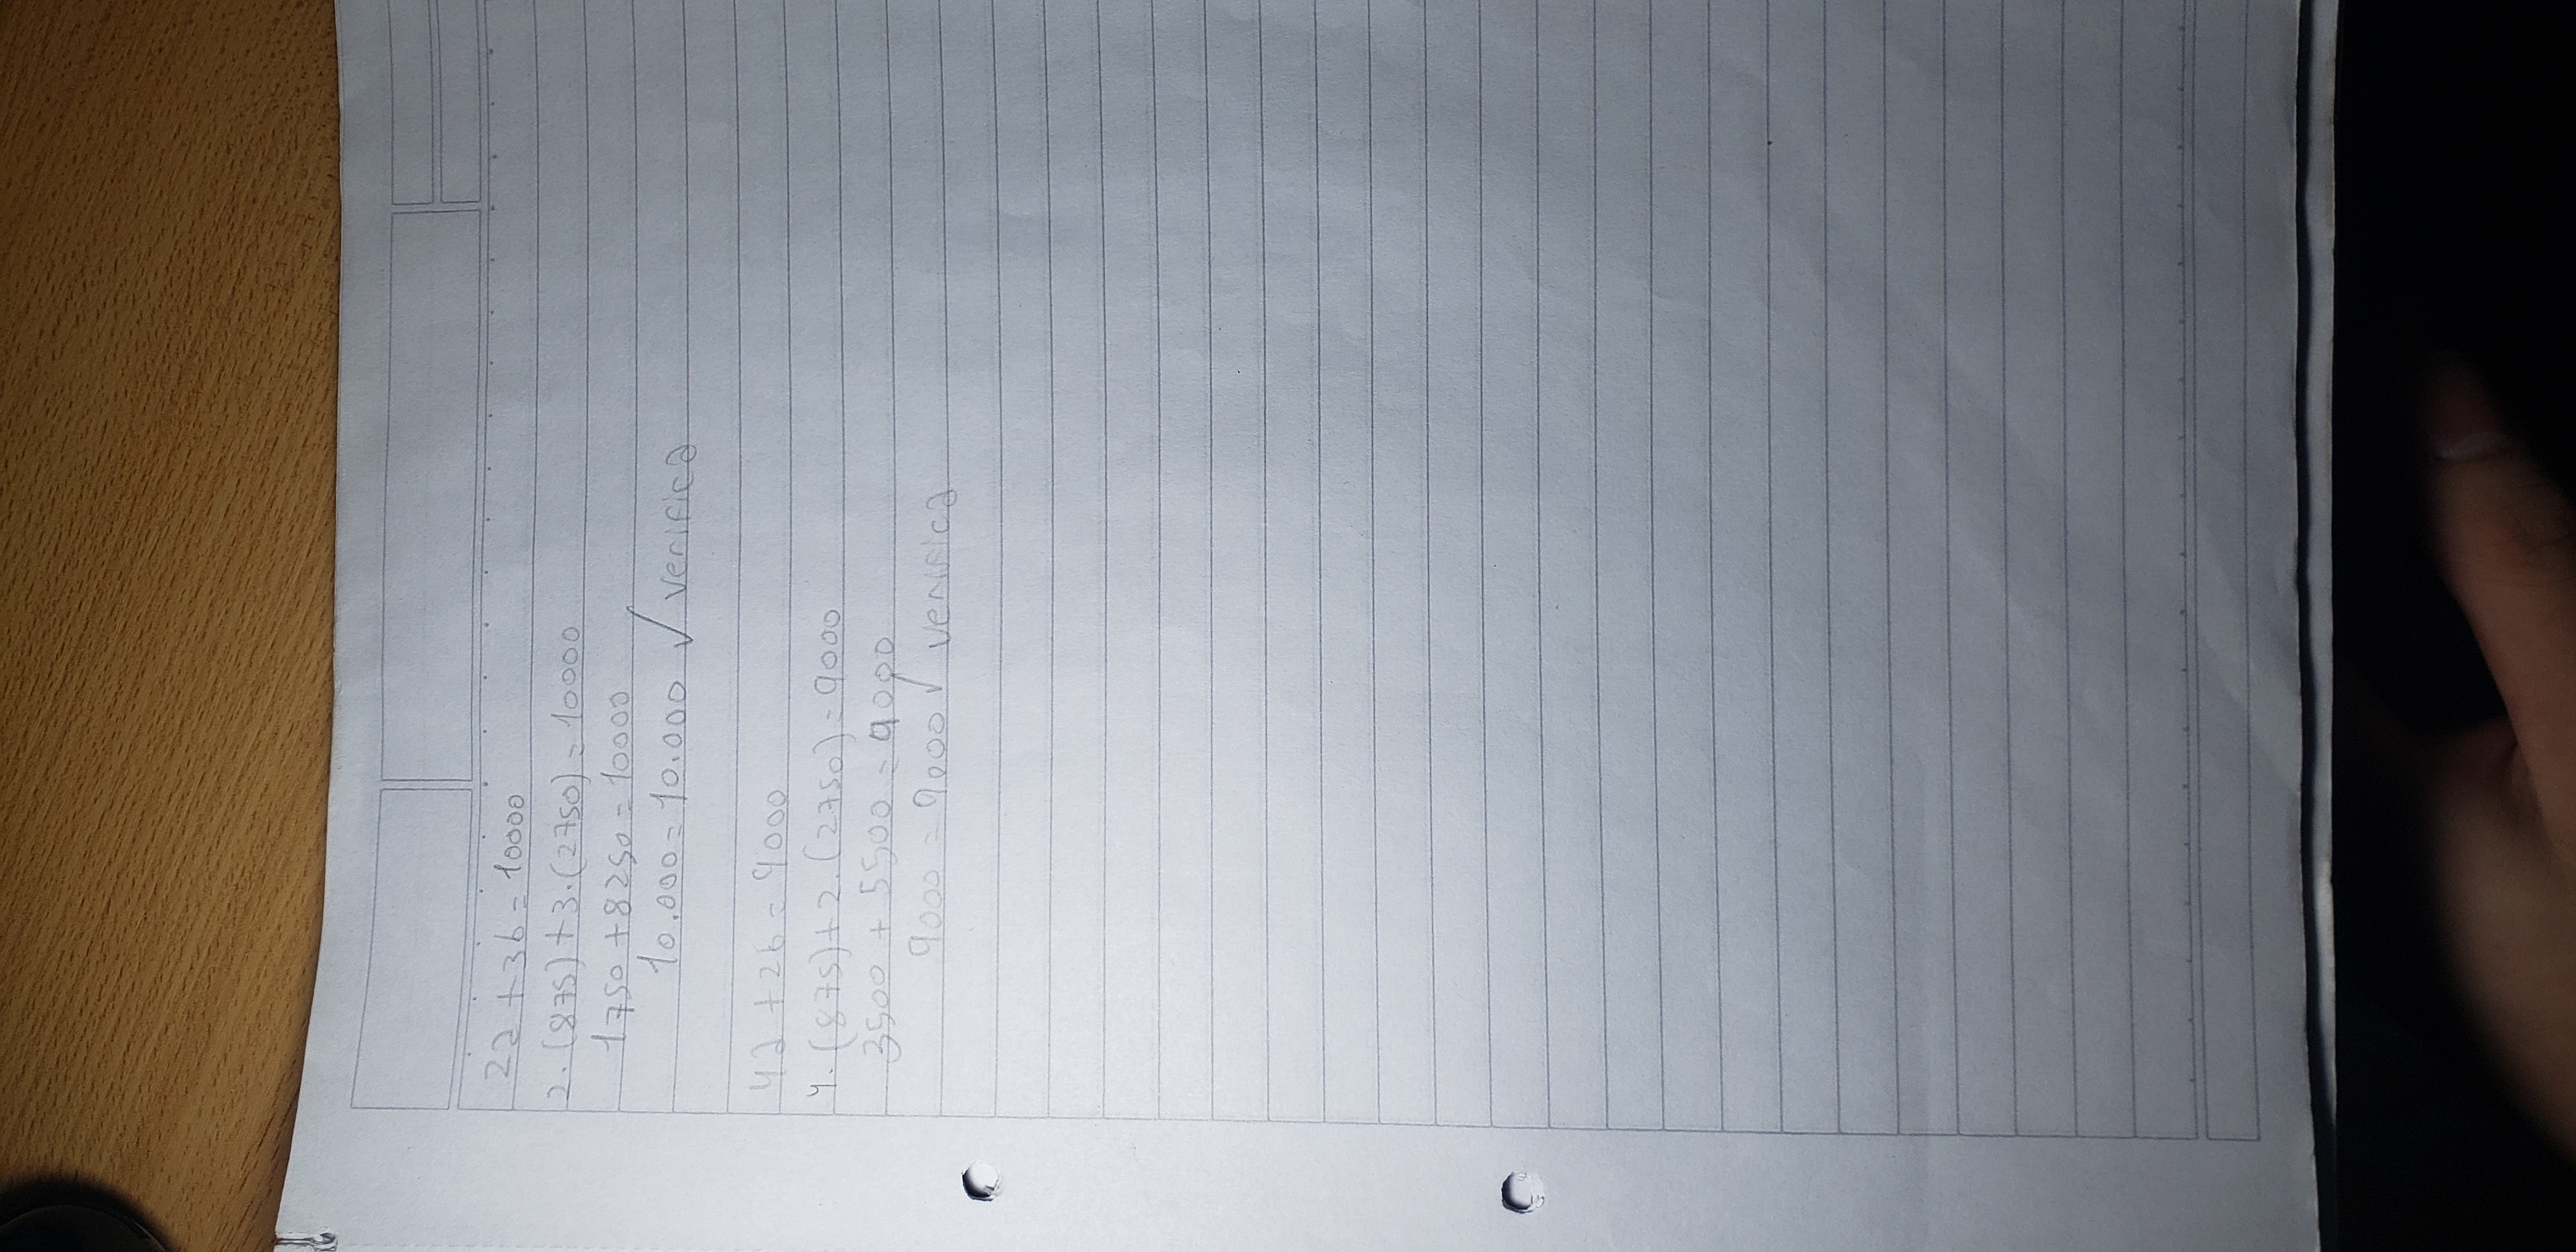 2a + 3b = 10000
2.(875)+3.(2750) = 10000
1750 + 8250 = 10000
10.000 = 10.000 √ verifica
4a + 2b = 9000
4.(875)+2.(2750) = 9000
3500 + 5500 = 9000
9000 = 9000 √ verifica